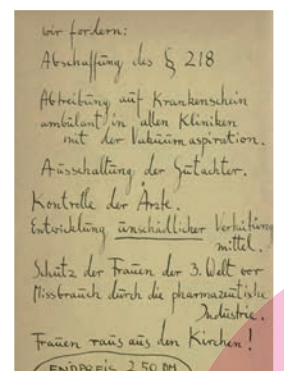 wir fordern:
Abschaffung des § 218
Abtreibung auf Krankenschein
ambulant in allen Kliniken
mit der Vakuumaspiration.
Ausschaltung der Gutachter.
Kontrolle der Ärzte.
Entwicklung unschädlicher Verhütungs
mittel.
Schutz der Frauen der 3. Welt vor
Missbrauch durch die pharmazeutische
Industrie.
Frauen raus aus den Kirchen!
ENDPREIS 2.50 DM